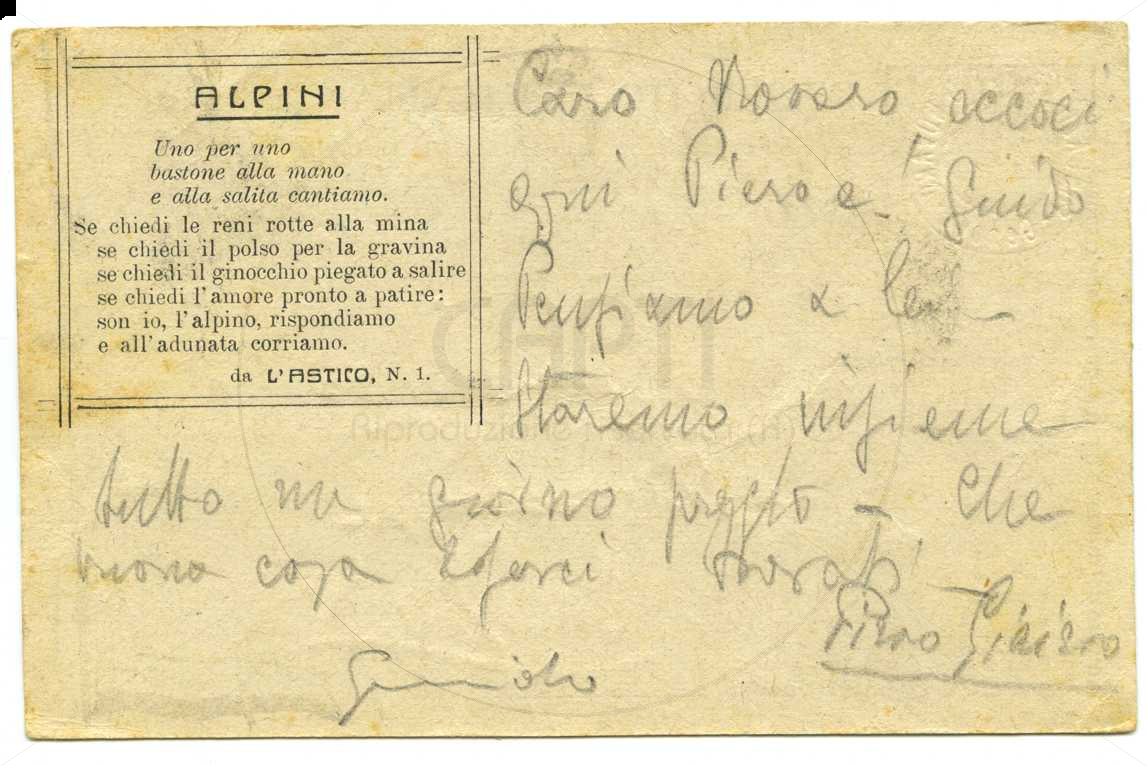 ALPINI
Uno per uno
bastone alla mano
e alla salita cantiamo.
Se chiedi le reni rotte alla mina
se chiedi il polso per la gravina
se chiedi il ginocchio piegato a salire
se chiedi l'amore pronto a patire:
son io, l'alpino, rispondiamo
e all'adunata corriamo.
da L'ASTICO, N. 1.
Caro Novaro, eccoci
qui Piero e Guido
Pensiamo a lei
Staremo insieme
tutto un giorno - Che
buona cosa esserci
Piero
Guido